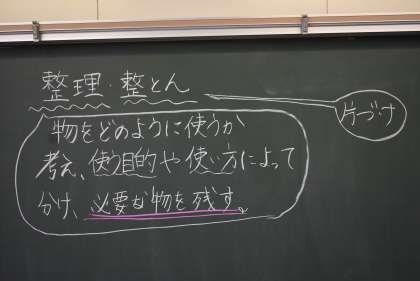 整理・整とん
片づけ
物をどのように使うか
考え、使う目的や使い方によって
分け、必要な物を残す。